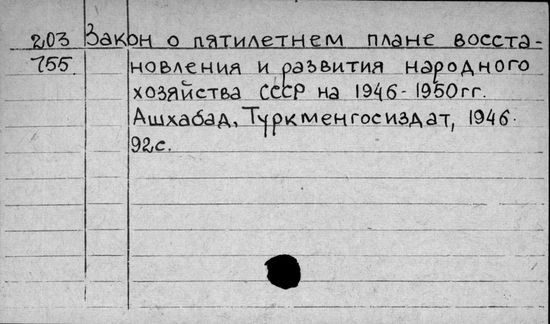 203 Закон о пятилетнем плане восста-
755. новления и развития народного
хозяйства СССР на 1946-1950гг.
Ашхабад, Туркменгосиздат, 1946.
92с.